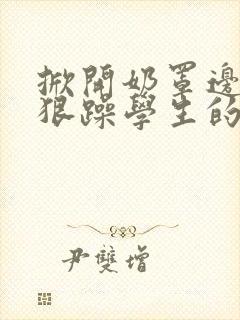 掀開奶罩邊
狠躁學生的
尹雙增